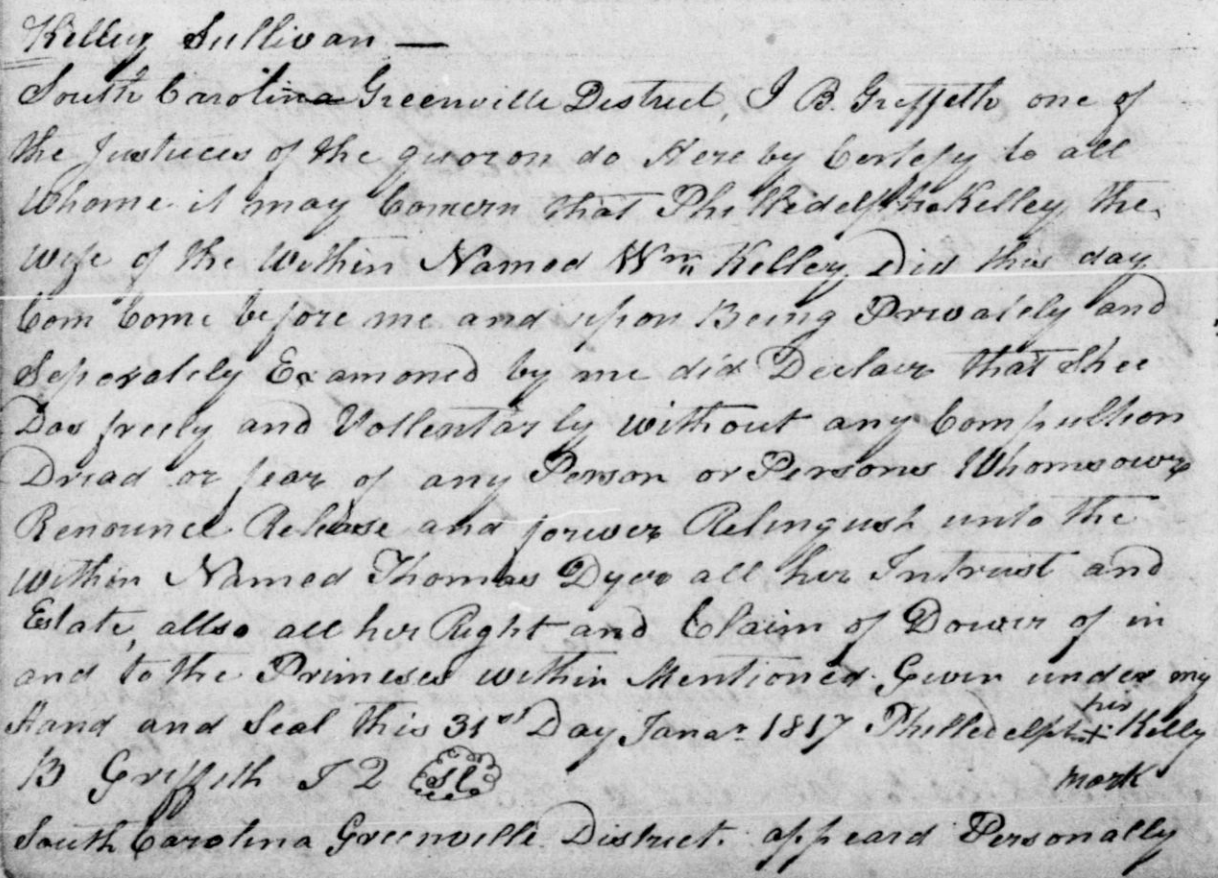 Kelley Sullivan —
South Carolina Greenville District, I B. Griffeth one of
the Justices of the quoron do Here by Certefy to all
Whome it may Concern that Phillidelpha Kelley the
wife of the Within Named Wm Kelley Did this day
Com Come before me and upon Being Privately and
Seperately Examoned by me did Declair that Shee
Dos freely and Vollentarly without any Compultion
Dread or fear of any Person or Persons Whomsoever
Renounce Release and forever Relingush unto the
within Named Thomas Dyer all her Intrust and
Estate, allso all her Right and Claim of Dower of in
and to the Primeses within Mentioned. Given under my
Hand and Seal this 31st Day Janar 1817 Philledelpha his + Kelly
B Griffeth J Q SL mark
South Carolina Greenville District. appeard Personally